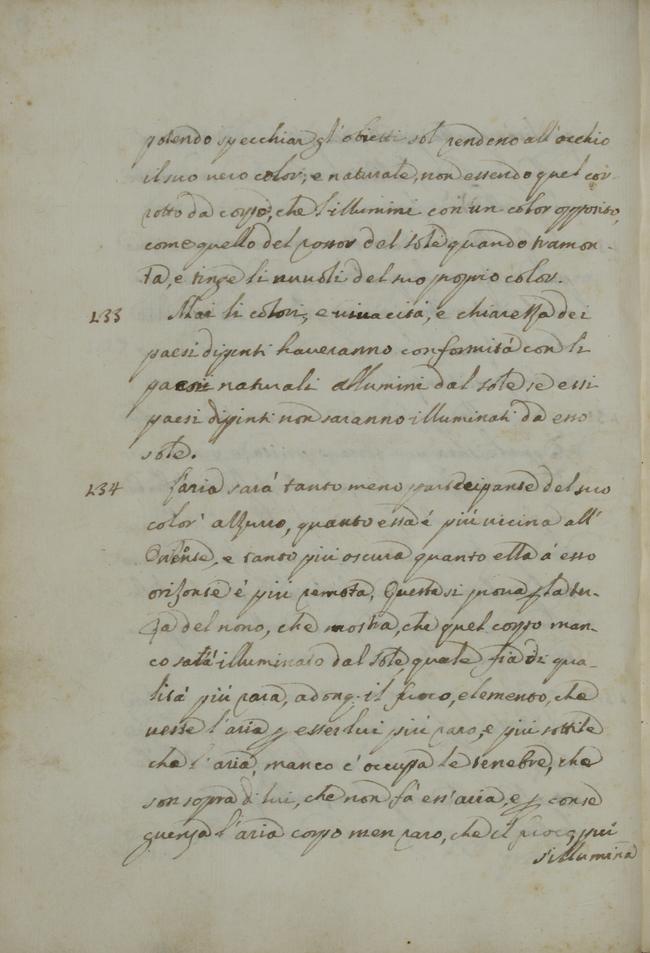 potendo specchiar gl'obietti sol rendeno all'occhio
il suo vero color, e naturale, non essendo quel cor-
rotto da corpo, che l'illumini con un color opposito,
come quello del rossor del sole quando tramon-
ta, e tinge li nuvoli del suo proprio color.
133 Mai li colori, e vivacità, e chiarezza dei
paesi dipinti haveranno conformità con li
paesi naturali allumini dal sole se essi
paesi dipinti non saranno illuminati da esso
sole.
134 L'aria sarà tanto meno participante del suo
color' azzurro, quanto essa é più vicina all'
Orizonte, e tanto più oscura quanto ella á esso
orizonte é più remota. Questo si prova p la ter-
za del nono, che mostra, che quel corpo man-
co sarà illuminato dal sole, quale fia di qua-
lità più rara, adonq. il fuoco, elemento, che
veste l'aria p esser lui più raro, e più sottile
che l'aria, manco c'occupa le tenebre, che
son sopra di lui, che non fa ess'aria, e p conse
guenza l'aria corpo men raro, che il fuoco, più
s'illumina